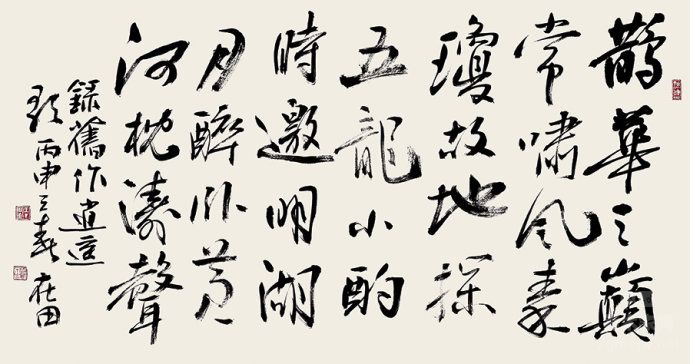 鵲華之巔
常嘯風秦
瓊故地探
五龍小酌
時邀明湖
月醉卧黄
河枕濤聲
錄舊作逍遥
丙申之春 在田